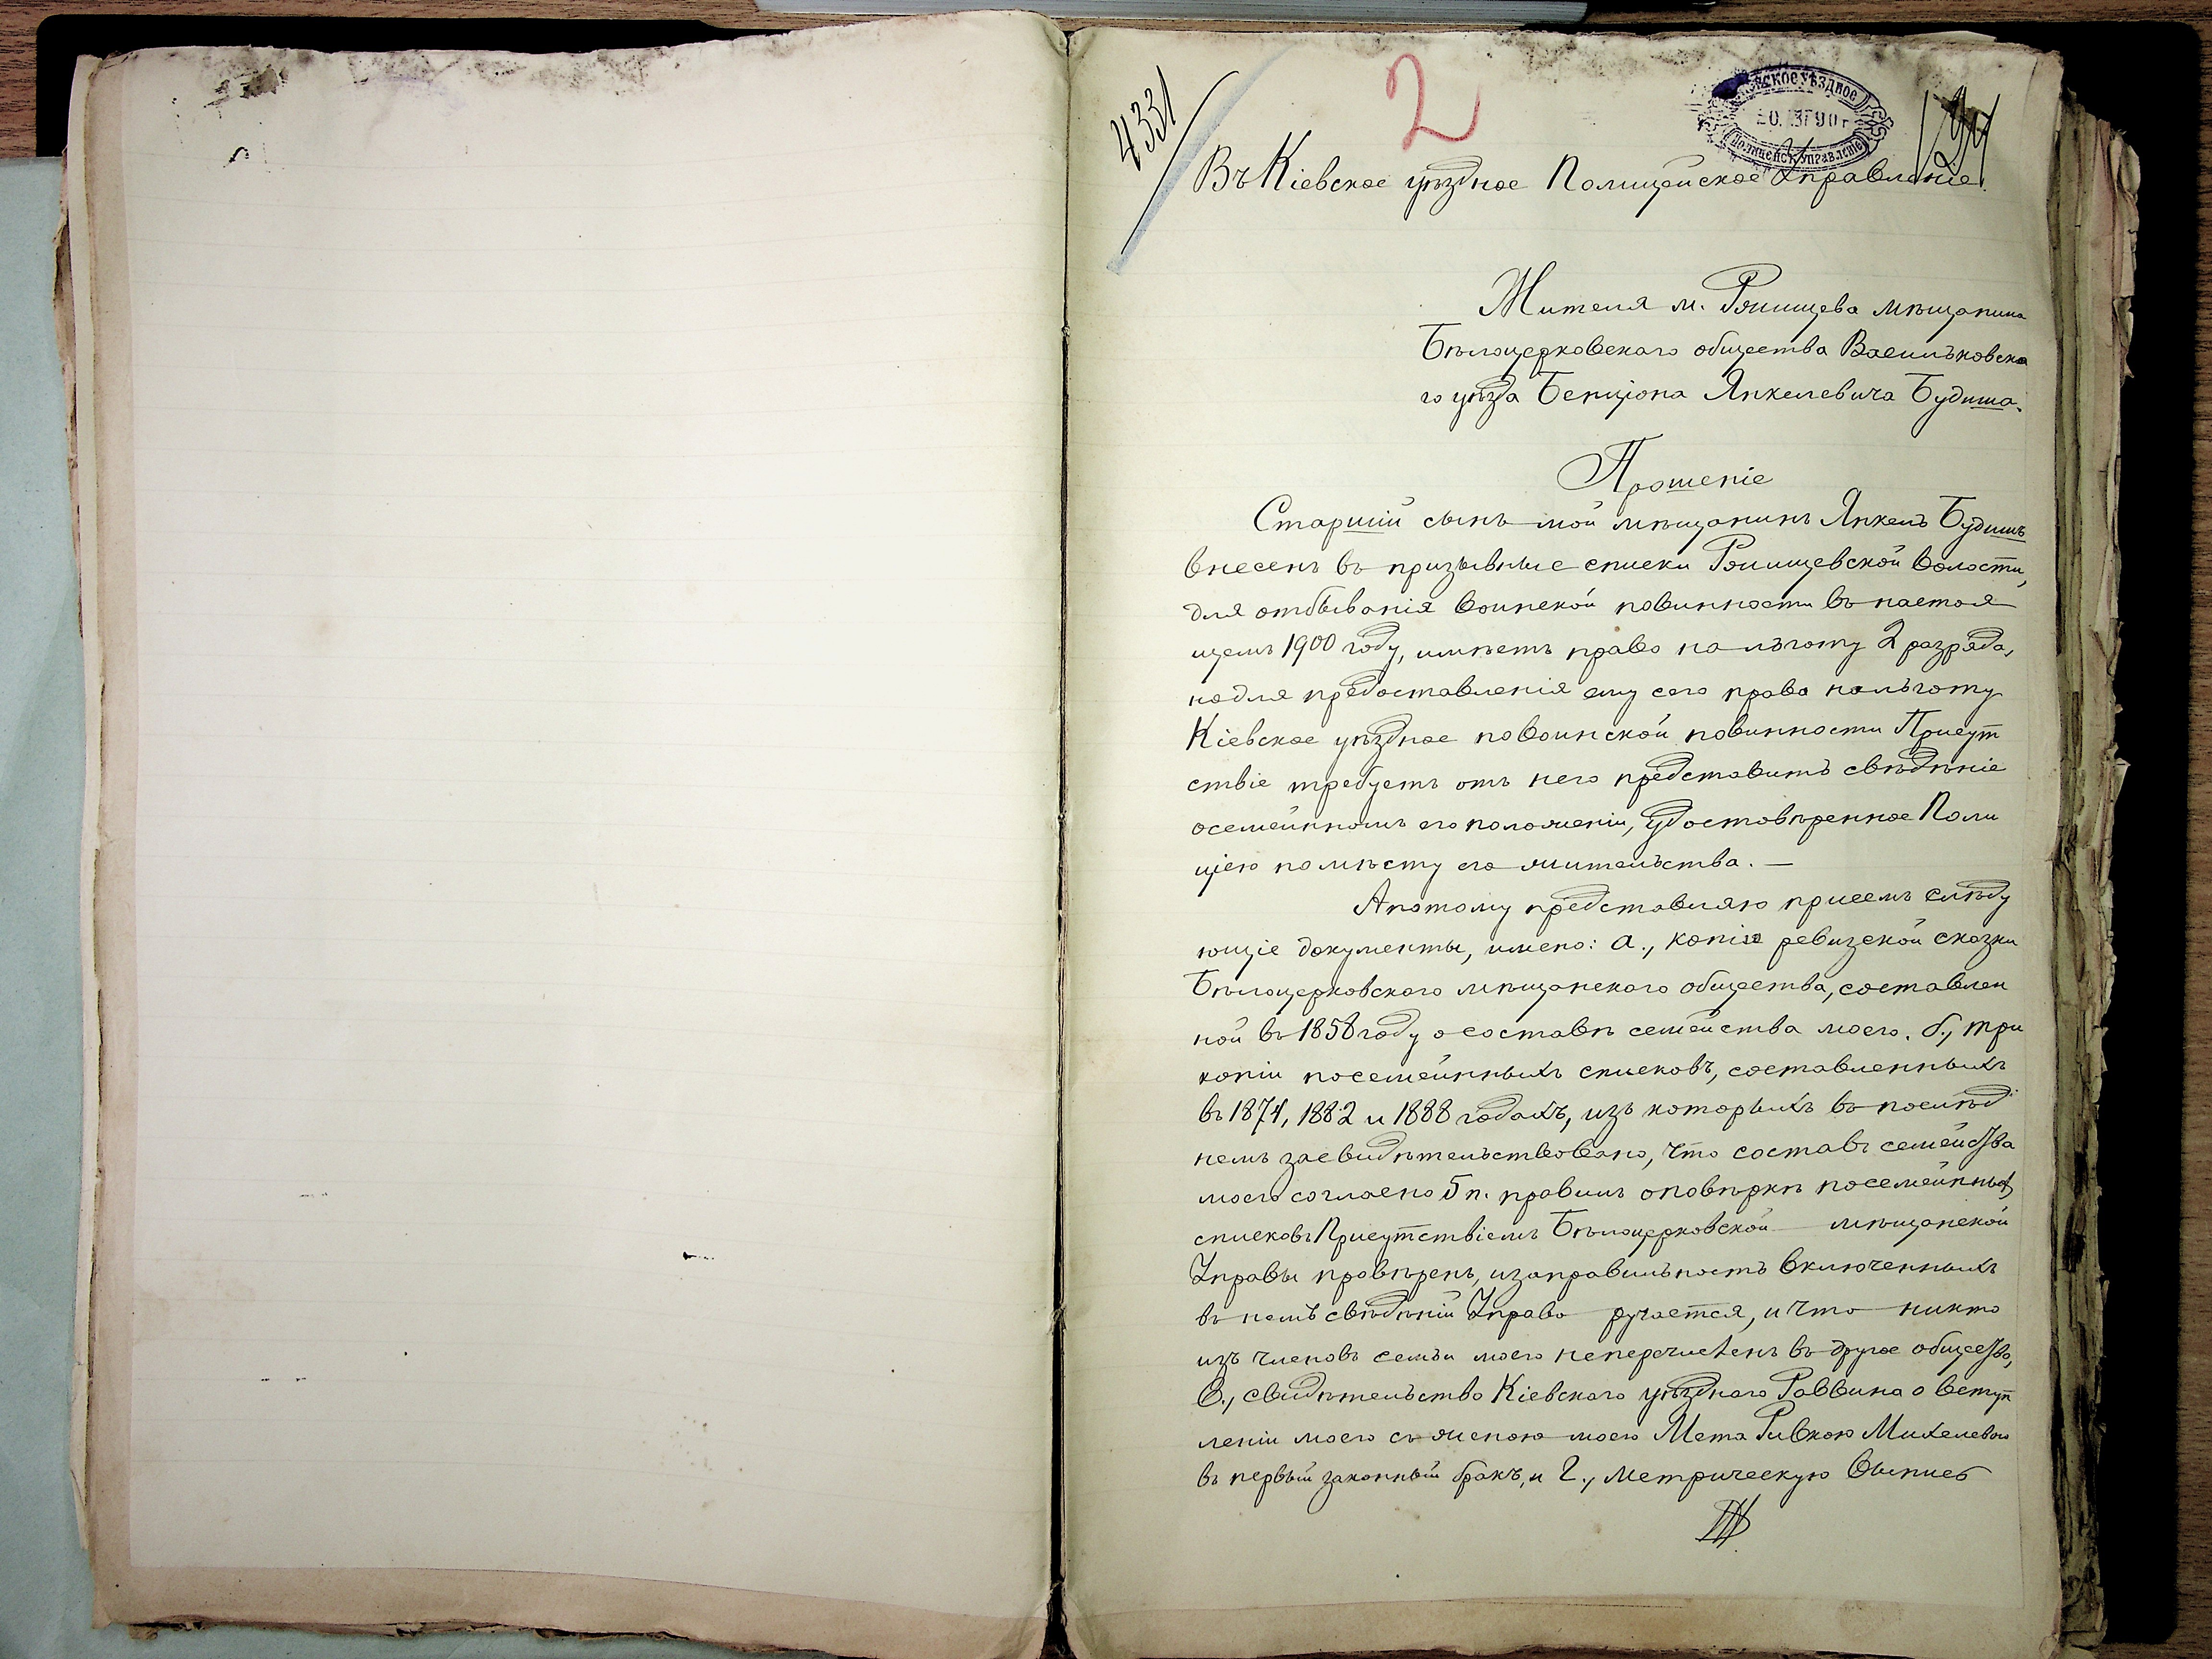 4331
2
УѢЗДНОЕ
ПОЛИЦЕЙСК. УПРАВЛЕНІЕ
Въ Кіевское уѣздное Полицейское Управленіе.
Жителя м. Ржищева мѣщанина
Бѣлоцерковскаго общества Васильковска
го уѣзда Бенціона Янкелевича Будиша.
Прошеніе
Старшій сынъ мой мѣщанинъ Янкель Будишъ
внесенъ въ призывные списки Ржищевской волости,
для отбыванія воинской повинности въ настоя
щемъ 1900 году, имѣетъ право на льготу 2 разряда,
но для предоставленія ему сего права на льготу
Кіевское уѣздное по воинской повинности Присут
ствіе требуетъ отъ него представить свѣдѣніе
о семейномъ его положеніи, удостовѣренное Поли
ціею по мѣсту его жительства. —
А потому представляю при семъ слѣду
ющіе документы, имено: а., копія ревизской сказки
Бѣлоцерковского мѣщанскаго общества, составлен
ной въ 1858 году о составѣ семейства моего. б., три
копіи посемейнныхъ списковъ, составленныхъ
въ 1874, 1882 и 1888 годахъ, изъ которыхъ въ послѣд
немъ засвидѣтельствовано, что составъ семейства
моего согласно 5 п. правилъ о повѣркѣ посемейных
списковъ Присутствіемъ Бѣлоцерковской мѣщанской
Управы провѣренъ, и за правильность включенныхъ
въ немъ свѣдѣній Управа ручается, и что никто
изъ членовъ семьи моего не перечисленъ въ другое общество,
в., свидѣтельство Кіевскаго уѣзднаго Раввина о вступ
леніи моего съ женою моею Мета Ривкою Михелевою
въ первый законный бракъ, и г., метрическую выпись